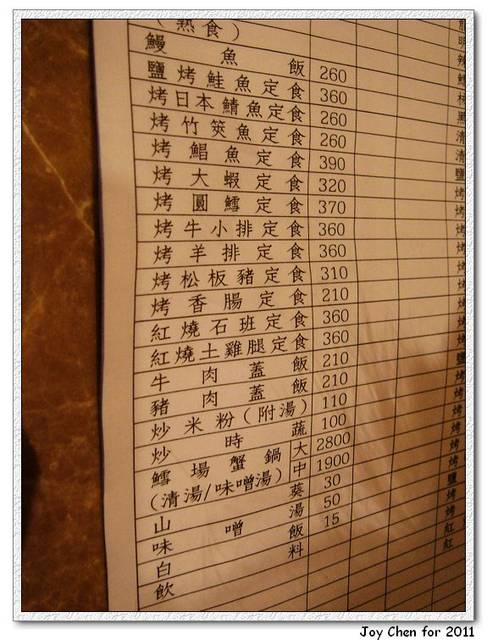 (熱食)
鰻魚飯 260
鹽烤鮭魚定食 360
烤日本鯖魚定食 260
烤竹筴魚定食 260
烤鯧魚定食 390
烤大蝦定食 320
烤圓鱈定食 370
烤牛小排定食 360
烤羊排定食 360
烤松板豬定食 310
烤香腸定食 210
紅燒石班定食 360
紅燒土雞腿定食 360
牛肉蓋飯 210
豬肉蓋飯 210
炒米粉(附湯) 110
炒時蔬 100
鱈場蟹鍋 大 2800
(清湯/味噌湯) 中 1900
山葵 30
味噌湯 50
白飯 15
飲料
Joy Chen for 2011